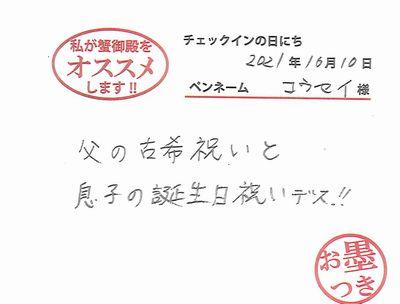 私が蟹御殿を
オススメ
します!!
チェックインの日にち
2021年10月10日
ペンネーム コウセイ様
父の古希祝いと
息子の誕生日祝いデス!!
お墨
つき